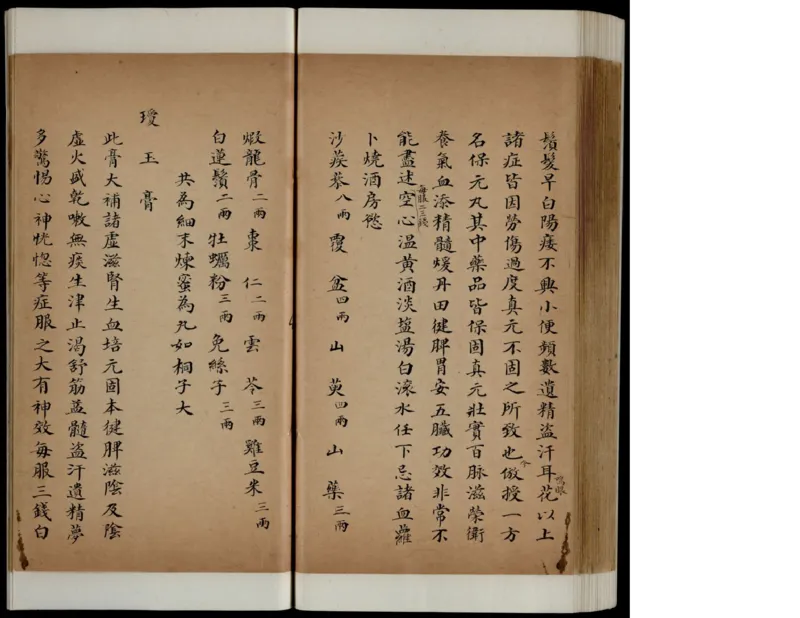 鬚髮早白陽痿不興小便頻數遺精盜汗耳花以上
眼
諸症皆因勞傷過度真元不固之所致也倣授一方
今
名保元丸其中藥品皆保固真元壯實百脉滋榮衛
養氣血添精髓煖丹田健脾胃安五臟功效非常不
能盡述空心温黄酒淡盐湯白滚水任下忌諸血蘿
每服二三錢
卜燒酒房慾
沙蒺藜八兩 覆盆四兩 山萸四兩 山藥三兩
煅龍骨二兩 棗仁二兩 雲苓三兩 雞豆米三兩
白蓮鬚二兩 牡蠣粉三兩 兔絲子三兩
共為細末煉蜜為丸如桐子大
瓊玉膏
此膏大補諸虛滋腎生血培元固本健脾滋陰及陰
虛火盛乾嗽無痰生津止渴舒筋益髓盜汗遺精夢
多驚惕心神恍惚等症服之大有神效每服三錢白